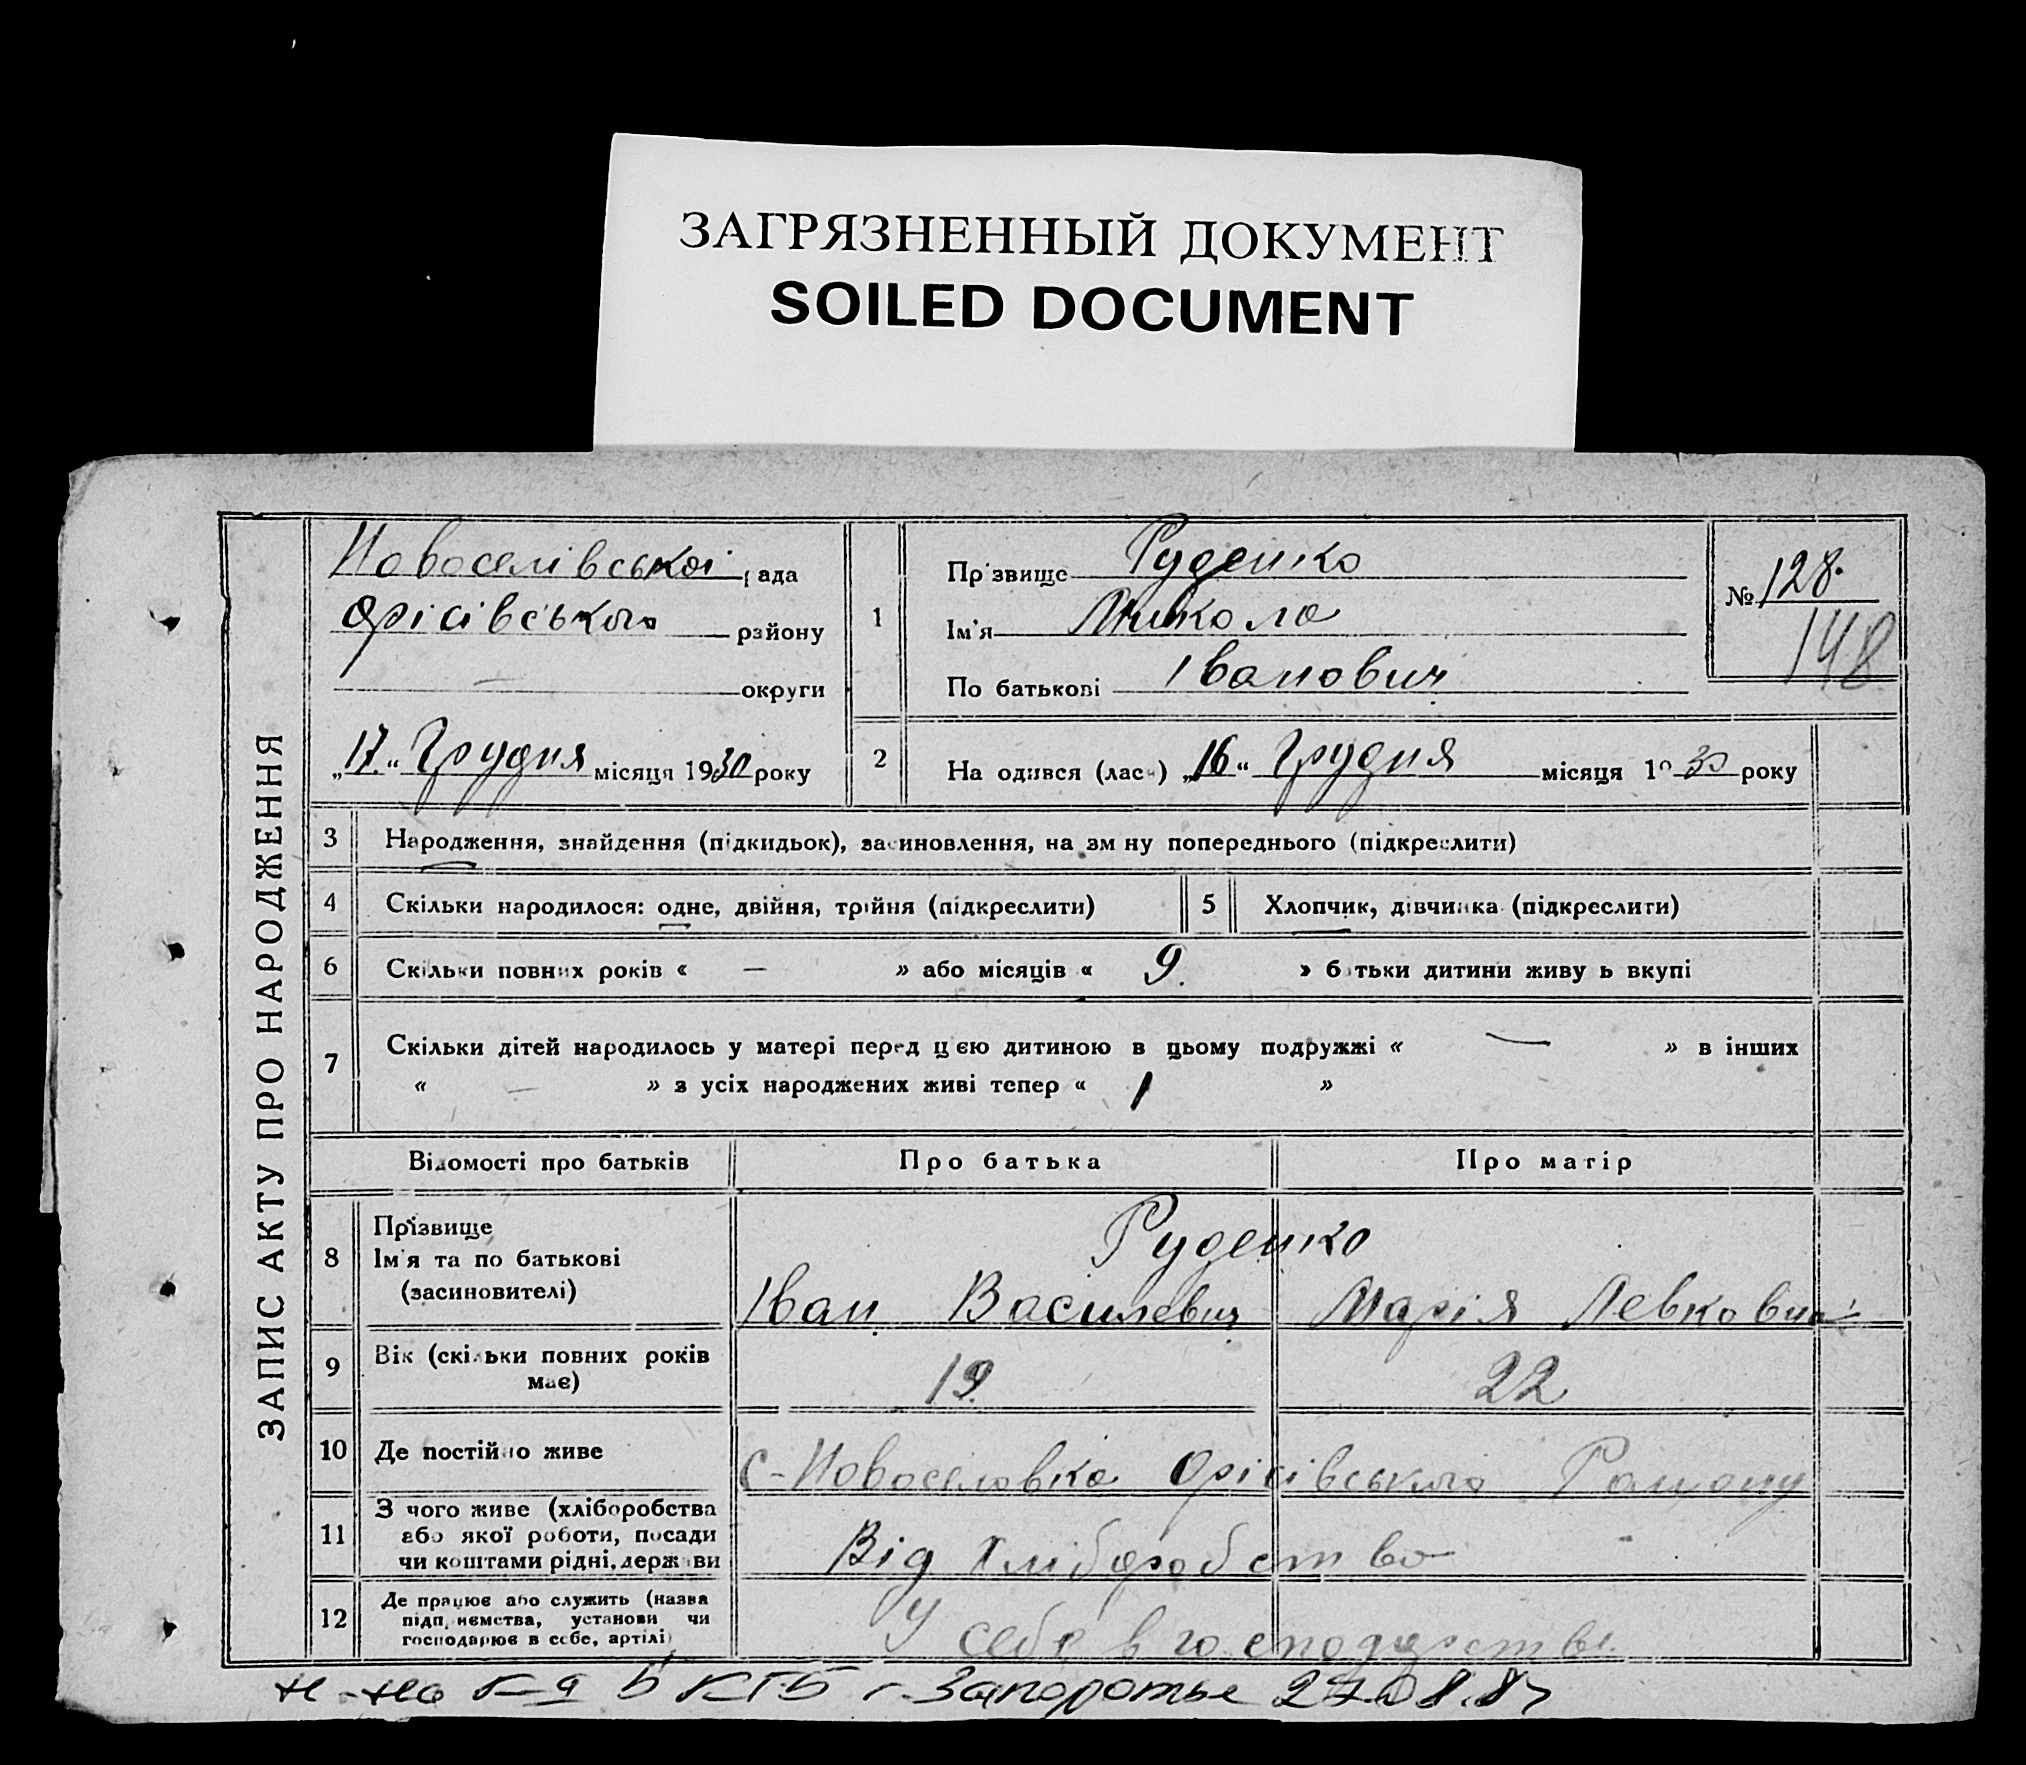 ЗАГРЯЗНЕННЫЙ ДОКУМЕНТ
SOILED DOCUMENT
ЗАПИС АКТУ ПРО НАРОДЖЕННЯ
Новоселівської рада
Орісівського району
— округи
„17.“ Грудня місяця 1930 року
1
Прізвище Руденко
Ім'я Микола
По батькові Іванович
№ 128.
148
2
На одився (лась) „16“ Грудня місяця 19 30 року
3 Народження, знайдення (підкидьок), засиновлення, на зм ну попереднього (підкреслити)
4 Скільки народилося: одне, двійня, трійня (підкреслити)
5 Хлопчик, дівчинка (підкреслити)
6 Скільки повних років « — » або місяців « 9. » б тьки дитини живу ь вкупі
7 Скільки дітей народилось у матері перед цією дитиною в цьому подружжі « — » в інших
« — » з усіх народжених живі тепер « 1 »
Відомості про батьків Про батька Про матір
8 Прізвище
Ім'я та по батькові
(засиновителі)
Руденко
Іван Василевич Марія Левковна
9 Вік (скільки повних років
має)
19. 22
10 Де постійно живе С-Новоселовка Орісівського Району
11 З чого живе (хліборобства
або якої роботи, посади
чи коштами рідні, держави
Від хліборобство
12 Де працює або служить (назва
підп иємства, установи чи
господарює в себе, артілі)
У себе в господарстві
КГБ г. Запорожье